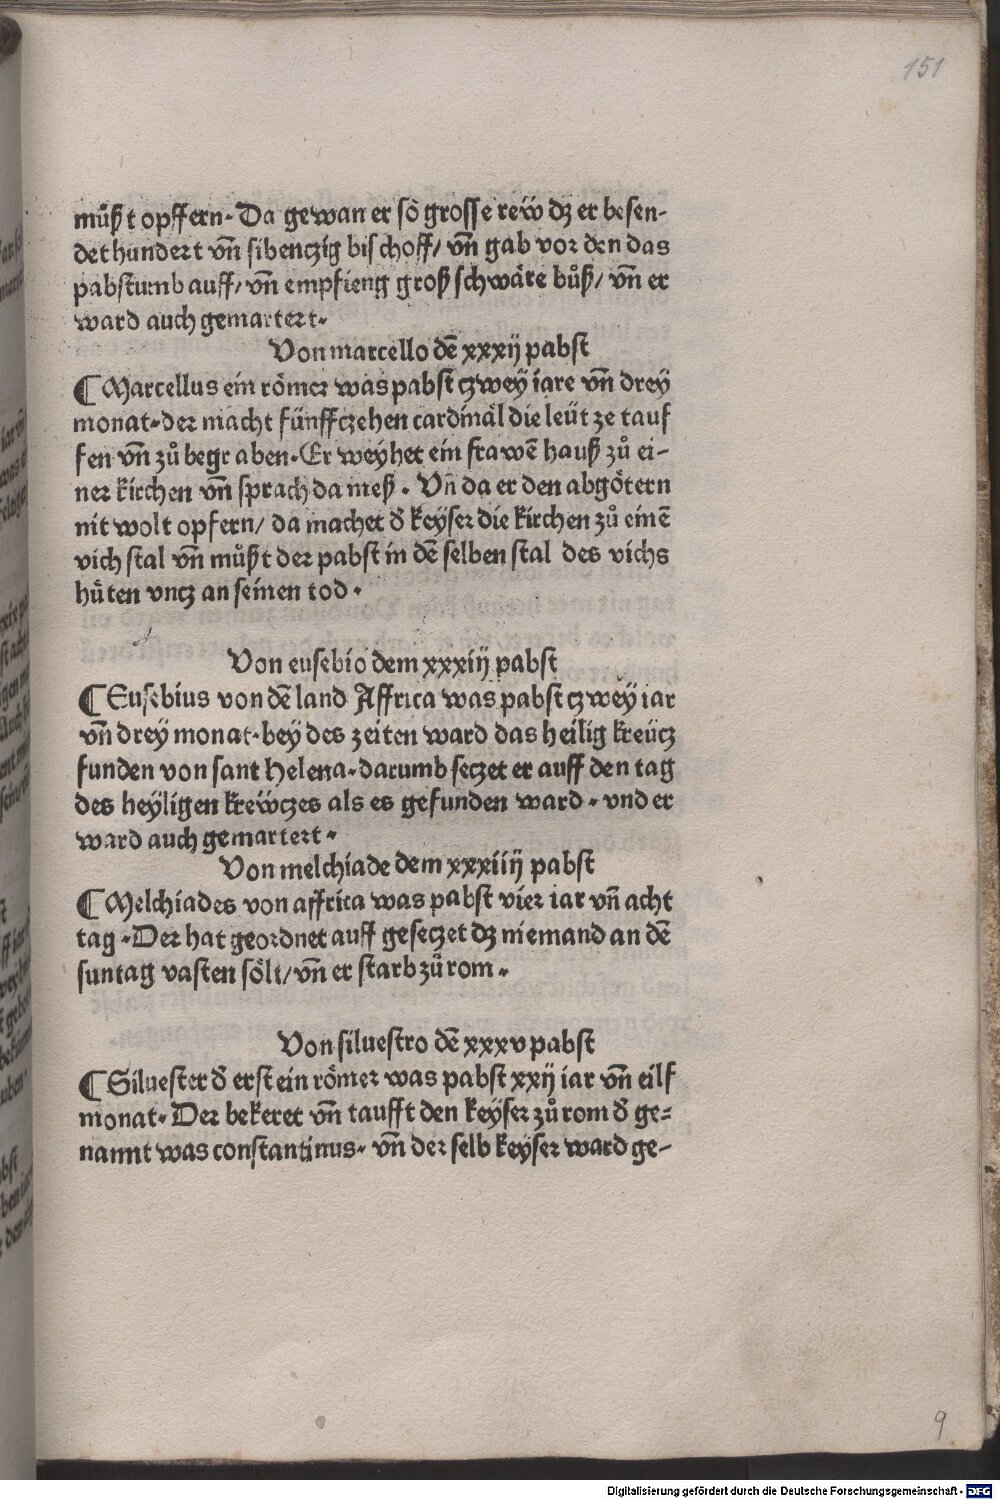 151
mu̇ßt opffern. Da gewan er so grosse reẅ dz er besen-
det hundert vn̄ sibenczig bischoff/ vn̄ gab vor den das
pabstumb auff/ vn̄ empfieng groß schwäre bůß/ vn̄ er
ward auch gemartert.
Von marcello dē xxxij pabst
¶ Marcellus ein römer was pabst czweÿ iare vn̄ dreÿ
monat. der macht fünffczehen cardinäl die leüt ze tauf
fen vn̄ zů begraben. Er weÿhet ein frawē hauß zů ei-
ner kirchen vn̄ sprach da meß. Vn̄ da er den abgötern
nit wolt opfern/ da machet d̄ keÿser die kirchen zů einē
vich stal vn̄ můßt der pabst in dē selben stal des vichs
hüten vncz an seinen tod.
Von eusebio dem xxxiij pabst
¶ Eusebius von dē land Affrica was pabst czweÿ iar
vn̄ dreÿ monat. beÿ des zeiten ward das heilig kreücz
funden von sant Helena. darumb seczet er auff den tag
des heÿligen kreẅczes als es gefunden ward. vnd er
ward auch gemartert.
Von melchiade dem xxxiiij pabst
¶ Melchiades von affrica was pabst vier iar vn̄ acht
tag. Der hat geordnet auff geseczet dz niemand an dē
suntag vasten sölt/ vn̄ er starb zů rom.
Von siluestro dē xxxv pabst
¶ Siluester d̄ erst ein römer was pabst xxij iar vn̄ eilf
monat. Der bekeret vn̄ taufft den keÿser zů rom d̄ ge=
nannt was constantinus. vn̄ der selb keÿser ward ge-
9
Digitalisierung gefördert durch die Deutsche Forschungsgemeinschaft - DFG